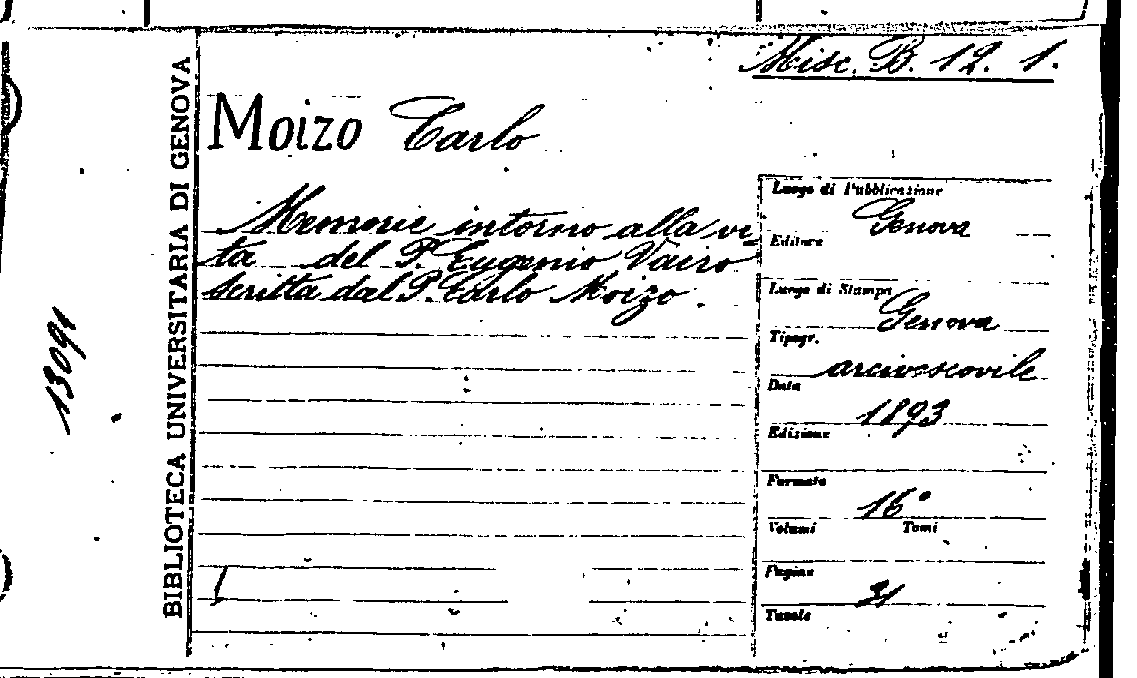 Misc. B. 12. 1.
BIBLIOTECA UNIVERSITARIA DI GENOVA
13091
Moizo Carlo
Memorie intorno alla vi=
ta del P. Eugenio Vairo
scritta dal P. Carlo Moizo.
Luogo di Pubblicazione
Genova
Editore
Luogo di Stampa
Genova
Tipogr.
arcivescovile
Data
1893
Edizione
Formato
16°
Volumi Tomi
Pagine
31
Tavole